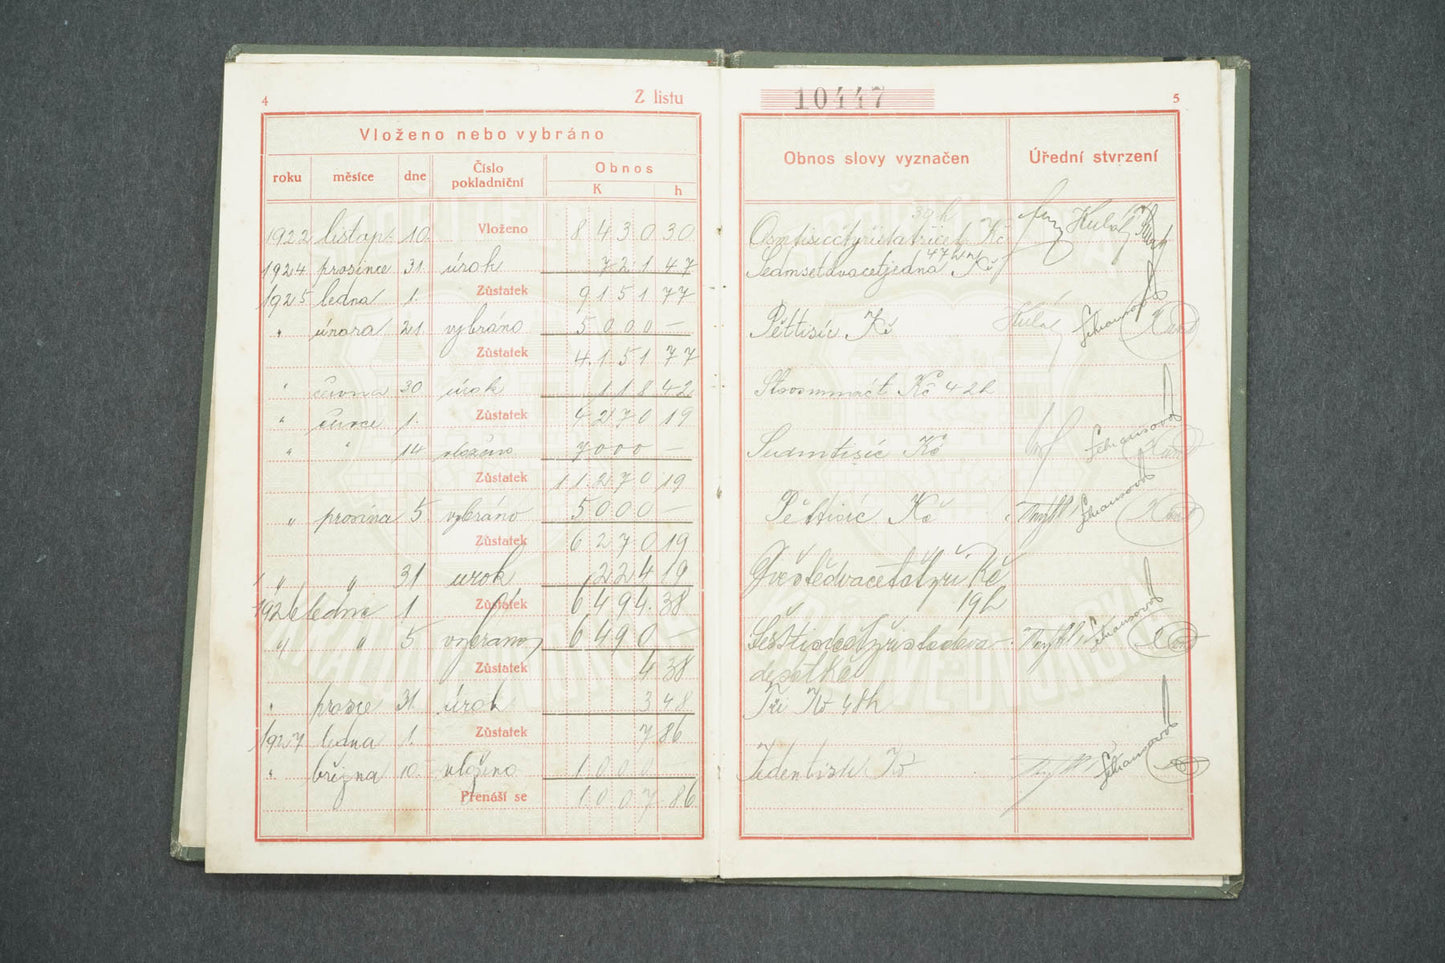 4
Z listu
Vloženo nebo vybráno
roku měsíce dne Číslo pokladniční Obnos
K h
1922 listop. 10. Vloženo 8430 30
1924 prosince 31. úrok 721 47
Zůstatek
1925 ledna 1. 9151 77
" února 21. vybráno 5000 —
Zůstatek 4151 77
" června 30 úrok 118 42
" čevce 1. Zůstatek 4270 19
" " 14 vloženo 7000 —
Zůstatek 11270 19
" prosince 5. vybráno 5000 —
Zůstatek 6270 19
" " 31 úrok 224 19
1926 ledna 1. Zůstatek 6494 38
" " 5 vybráno 6490 —
Zůstatek 4 38
" prosce 31. úrok 3 48
1927 ledna 1. Zůstatek 7 86
" března 10. vloženo 1000 —
Přenáší se 1007 86
10447
5
Obnos slovy vyznačen Úřední stvrzení
30h
Osmtisícčtyřistatřicet Kč Hula
47h
Sedmsetdvacetjedna Kč
Pěttisíc Kč Hula
Stoosmnáct Kč 42h
Sedmtisíc Kč
Pěttisíc Kč
Dvěstědvacetčtyři Kč
19h
Šesttisícčtyřistadeva-
desátKč
Tři Kč 48h
Jedentisíc Kč